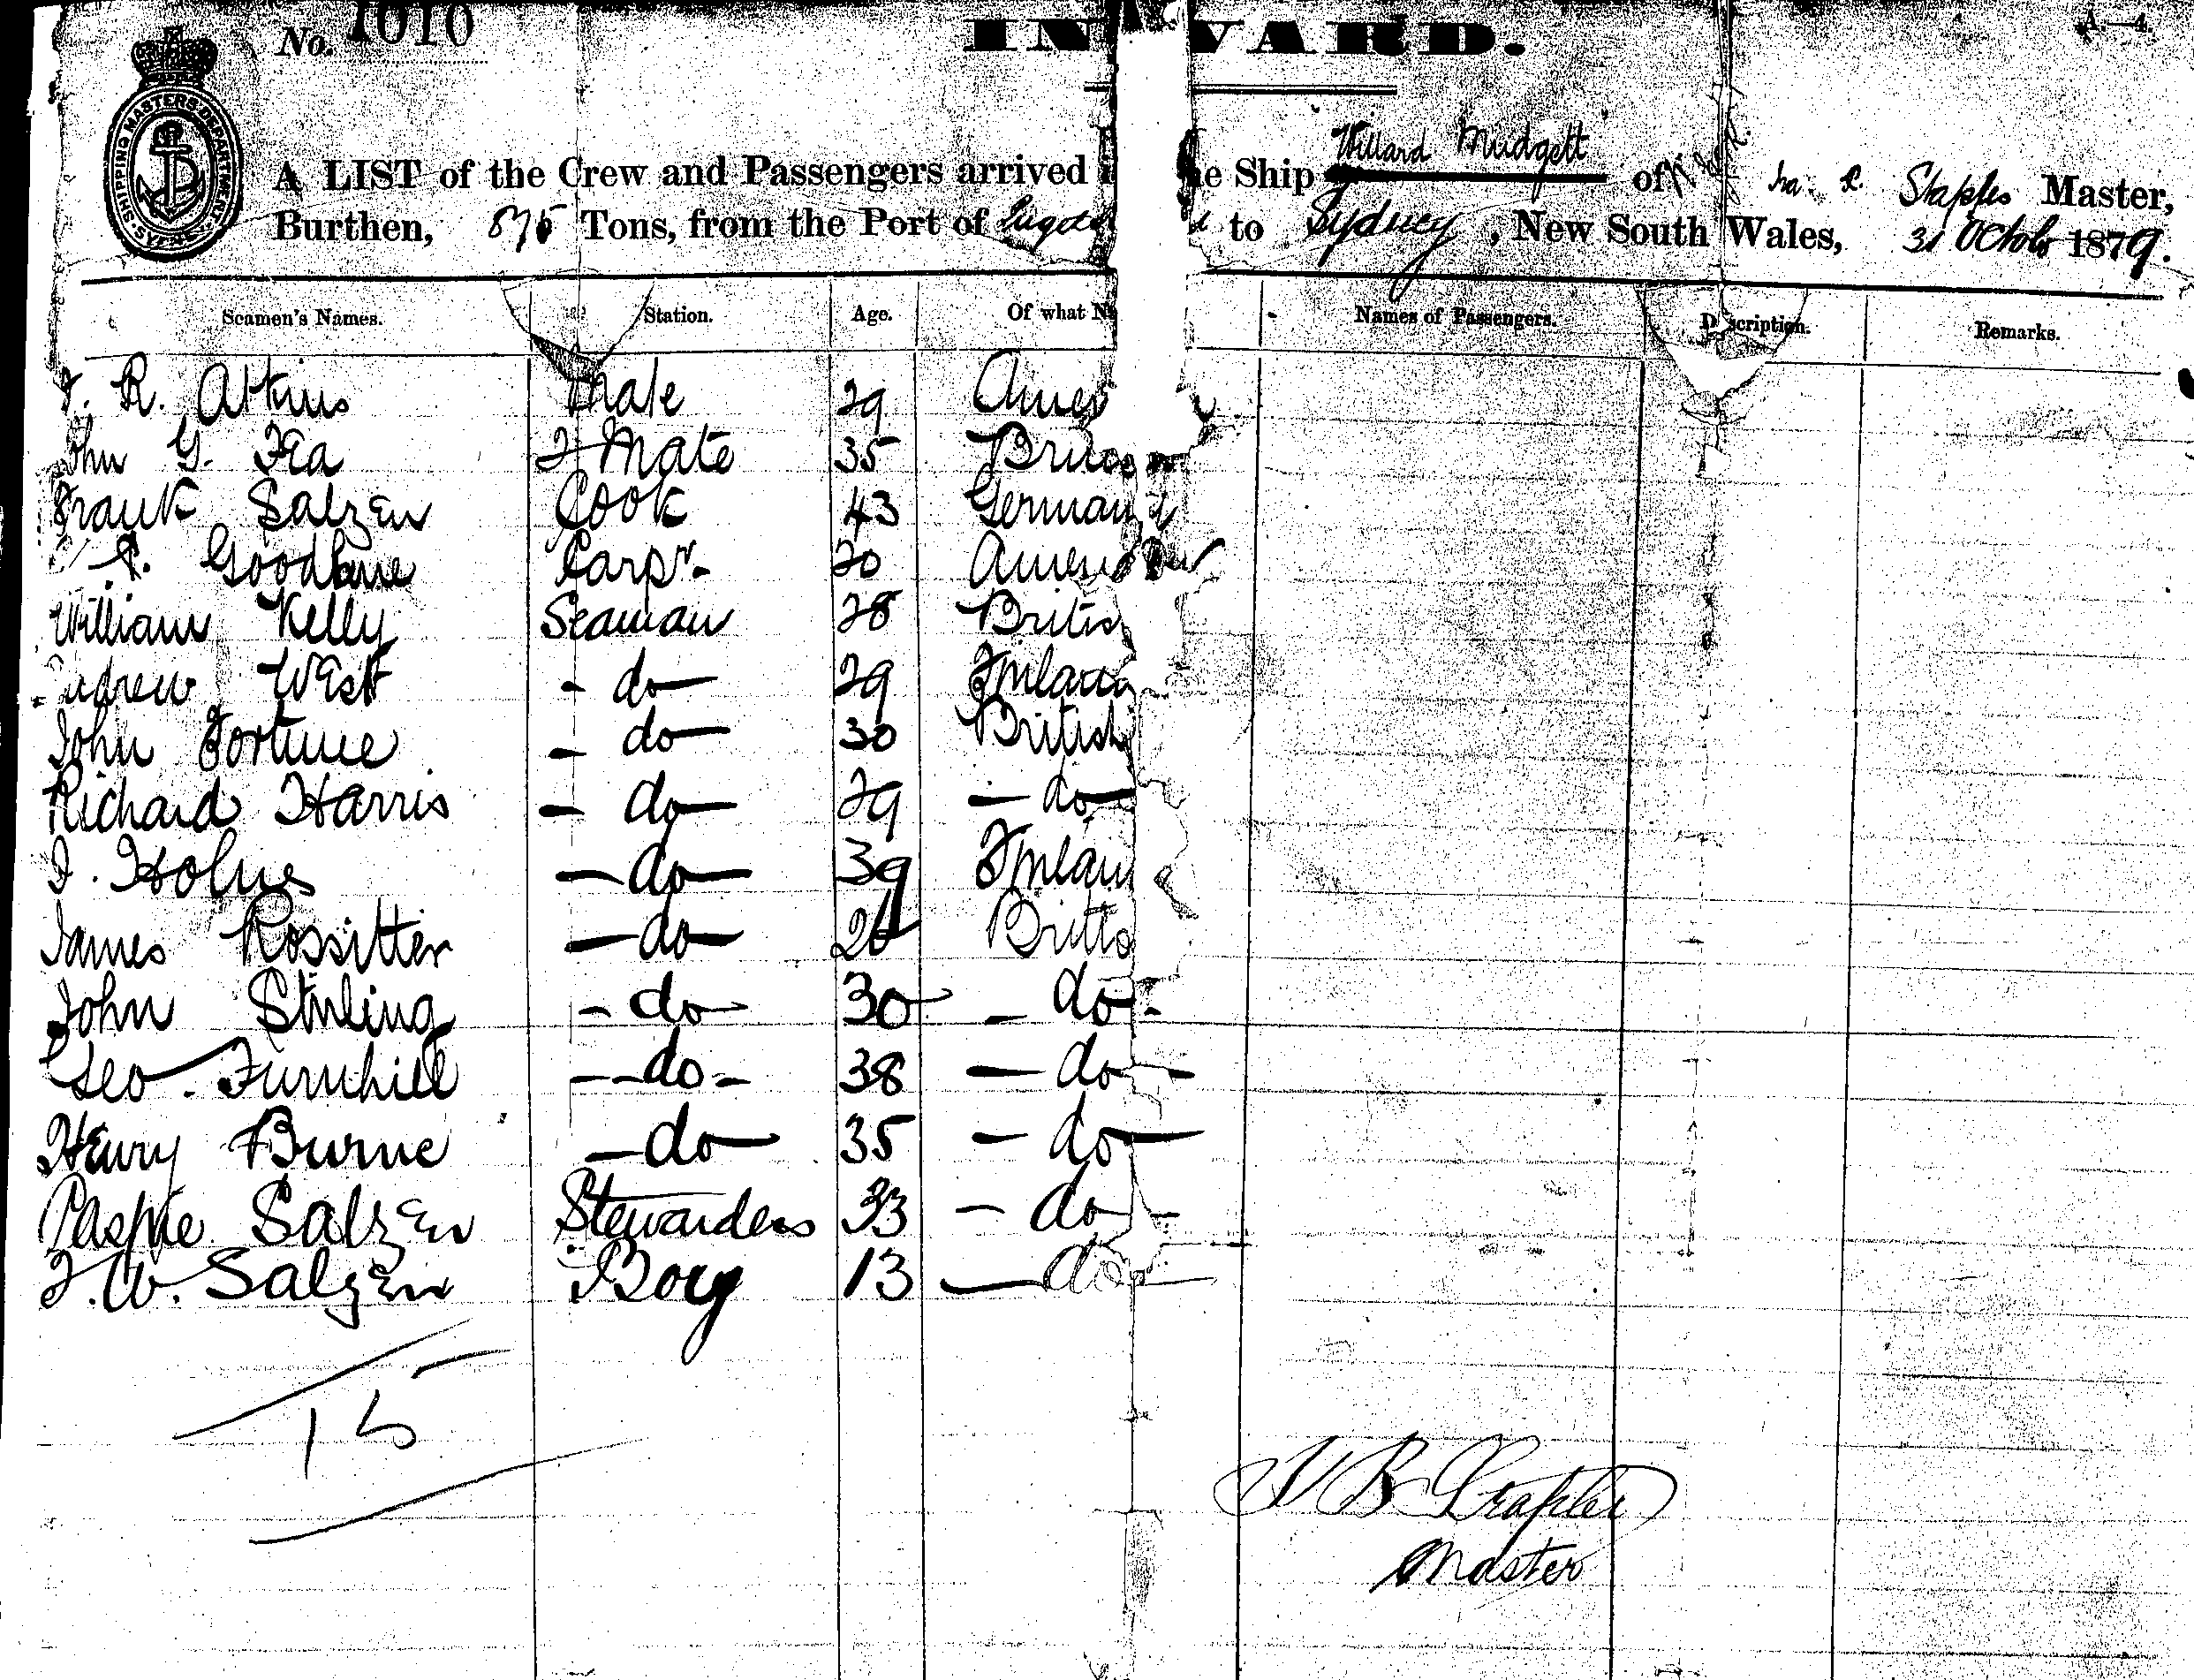 No. 1010
INWARD.
A—4.
SHIPPING MASTERS DEPARTMENT
SYDNEY
A LIST of the Crew and Passengers arrived e Ship Willard Mudgett of Ira. Staples Master,
Burthen, 875 Tons, from the Port of to Sydney, New South Wales, 31 October 1879.
Seamen's Names. Station. Age. Of what Na Names of Passengers. Description. Remarks.
R. Atkins Mate 29 Amer
ohn G. Fea 2 Mate 35 British
Frank Salzen Cook 43 German
Carpr. 20 American
William Kelly Seaman 28 British
Andrew West - do - 29 Finland
John Fortune - do - 30 British
Richard Harris - do - 29 - do -
I. Holmes - do - 39 Finlan
James Rossitter - do - 26 British
John Stirling - do - 30 - do -
Geo. Furnhill - do - 38 - do -
Henry Burne - do - 35 - do -
Salzen Stewardess 33 - do -
F. W. Salzen Boy 13 - do -
15
B Staples
Master